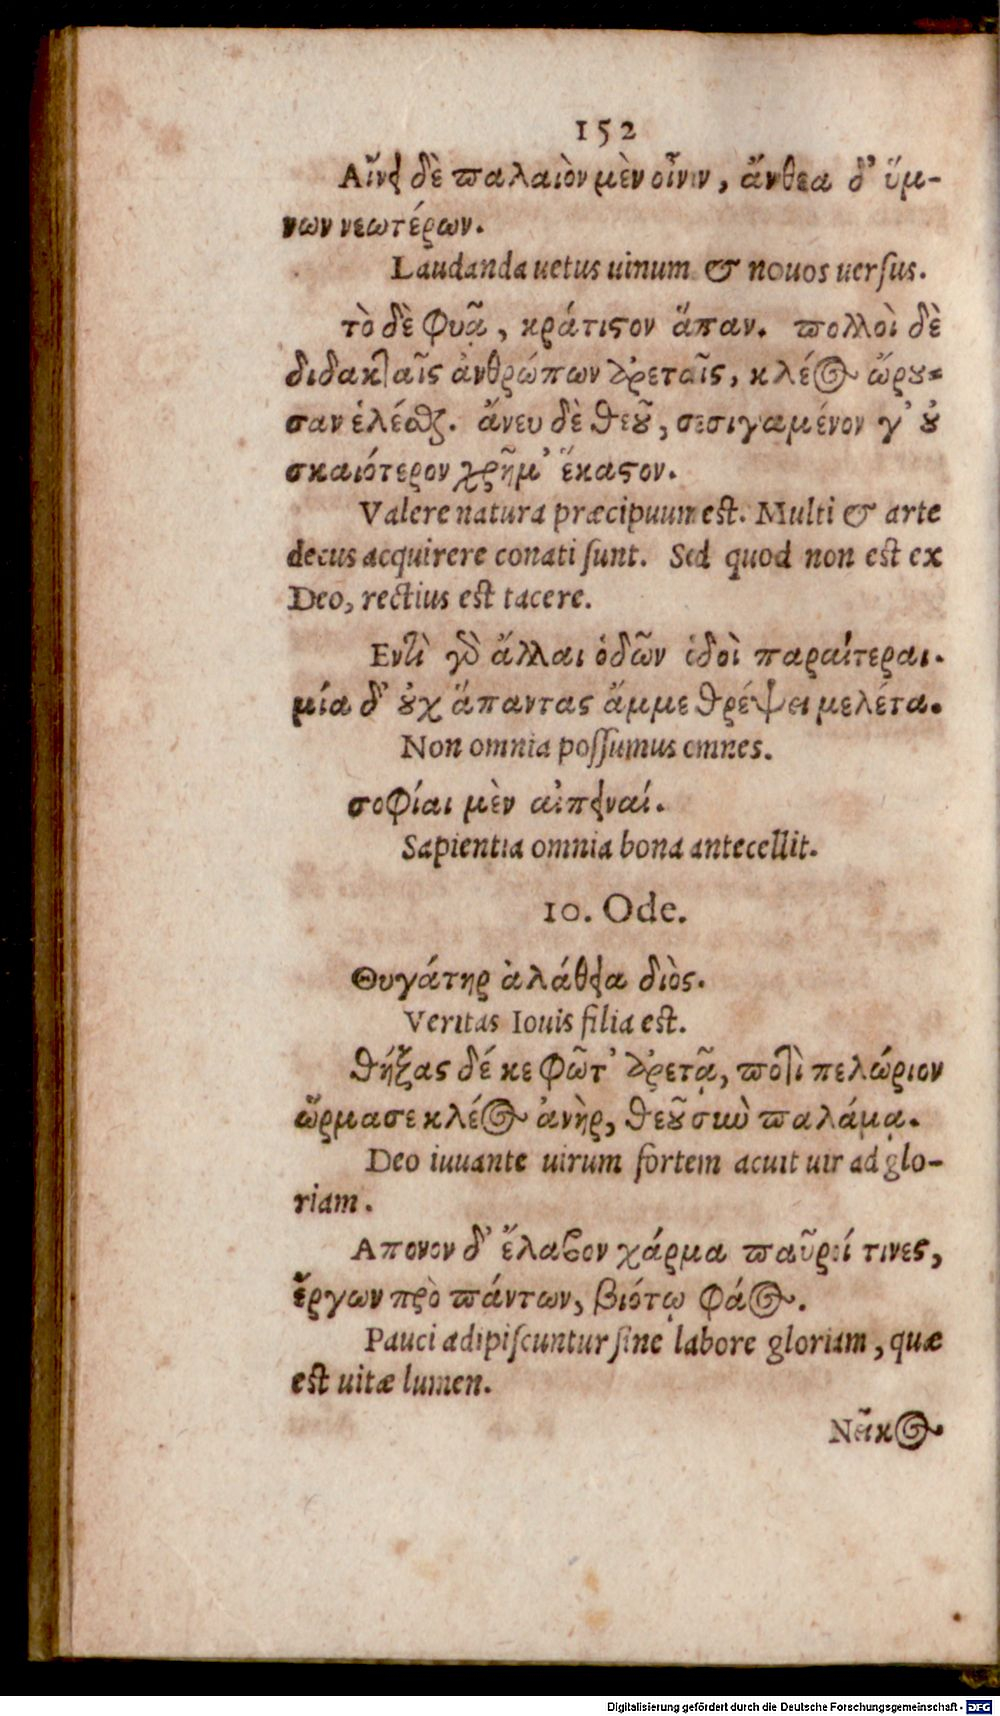 152
Αἴνει δὲ παλαιὸν μὲν οἶνον, ἄνθεα δ' ὕμ-
νων νεωτέρων.
Laudanda uetus uinum & nouos uersus.
τὸ δὲ φυᾷ, κράτιςον ἅπαν. πολλοὶ δὲ
διδακταῖς ἀνθρώπων ἀρεταῖς, κλέος ὤρου-
σαν ἑλέσθαι. ἄνευ δὲ θεοῦ, σεσιγαμένον γ' οὐ
σκαιότερον χρῆμ' ἕκαςον.
Valere natura præcipuum est. Multi & arte
decus acquirere conati sunt. Sed quod non est ex
Deo, rectius est tacere.
Εντὶ γὸ ἄλλαι ὁδῶν ὁδοὶ παραίτεραι.
μία δ' οὐχ ἅπαντας ἄμμε θρέψει μελέτα.
Non omnia possumus omnes.
σοφίαι μὲν αἰπειναί.
Sapientia omnia bona antecellit.
10. Ode.
Θυγάτηρ ἀλάθεια διὸς.
Veritas Iouis filia est.
θήξας δέ κε φῶτ' ἀρετᾷ, ποτὶ πελώριον
ὥρμασε κλέος ἀνὴρ, θεοῦ σιω παλάμᾳ.
Deo iuuante uirum fortem acuit uir ad glo-
riam.
Απονον δ' ἔλαβον χάρμα παῦροί τινες,
ἔργων πρὸ πάντων, βιότῳ φάος.
Pauci adipiscuntur sine labore gloriam, quæ
est uitæ lumen.
Νεῖκος
Digitalisierung gefördert durch die Deutsche Forschungsgemeinschaft - DFG